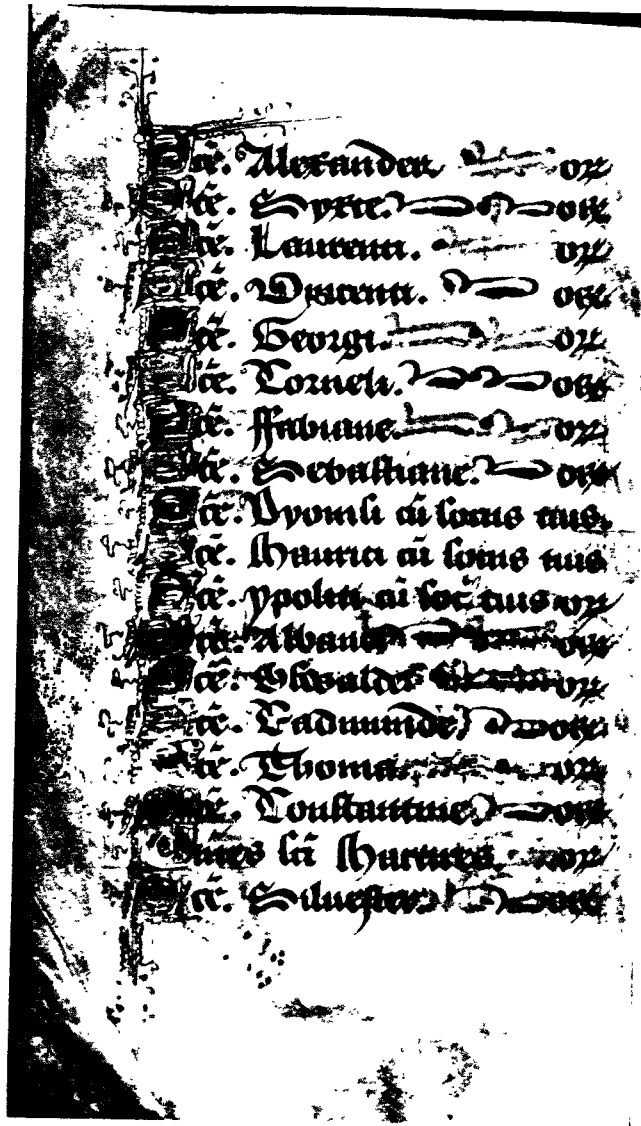 Scē. Alexander. or
Scē. Syxte. or
Scē. Laurenti. or
Scē. Vincenti. or
Scē. Georgi. or
Scē. Corneli. or
Scē. ffabiane. or
Scē. Sebastiane. or
Scē. Dyonisi cū sociis tuis.
Scē. Maurici cū sociis tuis
Scē. ypoliti cū soc̄ tuis or
Scē. Albane or
Scē. Oswalde or
Scē. Eadmunde or
Scē. Thoma or
Scē. Constantine. or
Omnes scī Martires. or
Scē. Siluester. or